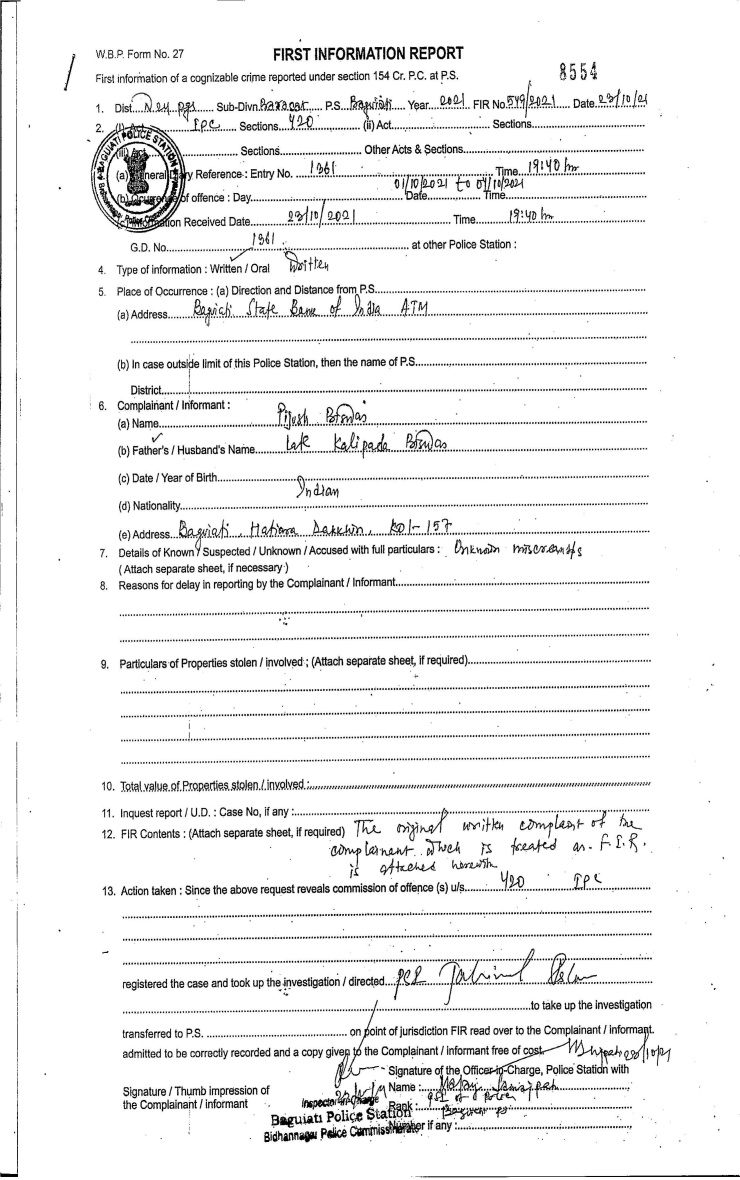 W.B.P. Form No. 27
FIRST INFORMATION REPORT
8554
First information of a cognizable crime reported under section 154 Cr. P.C. at P.S.
1. Dist. N. 24 pgs Sub-Divn. Barasat P.S. Baguiati Year 2021 FIR No. 549/2021 Date 23/10/21
2. (i) Act IPC Sections 420 (ii) Act Sections
(iii) Act Sections Other Acts & Sections
(a) General Diary Reference : Entry No. 1361 Time 19:40 hr
01/10/2021 to 04/10/2021
(b) Occurrence of offence : Day Date Time
(c) Information Received Date 23/10/2021 Time 19:40 hr
G.D. No. 1361 at other Police Station :
4. Type of information : Written / Oral Written
5. Place of Occurrence : (a) Direction and Distance from P.S.
(a) Address Baguiati State Bank of India ATM
(b) In case outside limit of this Police Station, then the name of P.S.
District
6. Complainant / Informant :
(a) Name Pijush Biswas
(b) Father's / Husband's Name Late Kalipada Biswas
(c) Date / Year of Birth
(d) Nationality Indian
(e) Address Baguiati, Hatiara Dakshin, Kol-157
7. Details of Known / Suspected / Unknown / Accused with full particulars : Unknown miscreants
( Attach separate sheet, if necessary )
8. Reasons for delay in reporting by the Complainant / Informant
9. Particulars of Properties stolen / involved ; (Attach separate sheet, if required)
10. Total value of Properties stolen / involved :
11. Inquest report / U.D. : Case No, if any :
12. FIR Contents : (Attach separate sheet, if required) The original written complaint of the
complainant which is treated as F.I.R.
is attached herewith
13. Action taken : Since the above request reveals commission of offence (s) u/s 420 IPC
registered the case and took up the investigation / directed
to take up the investigation
transferred to P.S. on point of jurisdiction FIR read over to the Complainant / informant.
admitted to be correctly recorded and a copy given to the Complainant / informant free of cost.
Signature of the Officer-in-Charge, Police Station with
Signature / Thumb impression of Name :
the Complainant / informant Inspector-in-Charge Rank :
Baguiati Police Station
Bidhannagar Police Commissionerate Number if any :